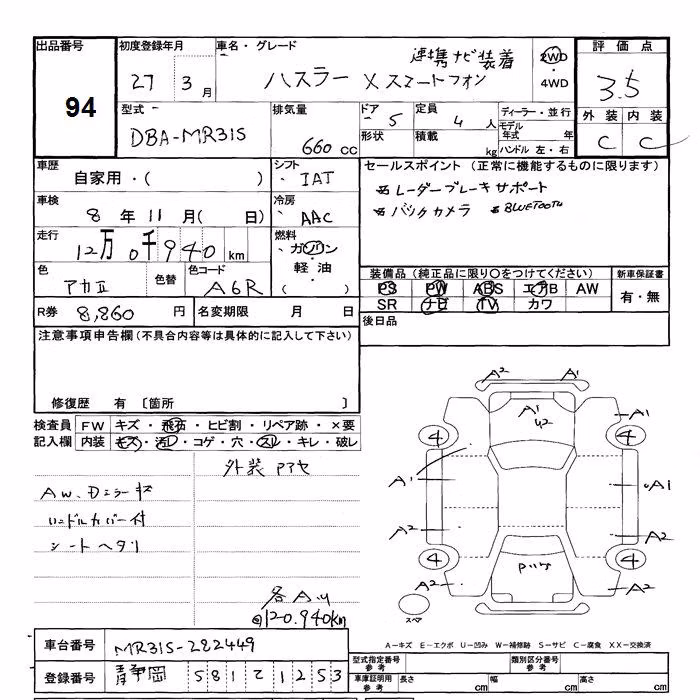 出品番号
94
初度登録年月
27 3 月
車名・グレード
ハスラー X スマートフォン
連携ナビ装着
2WD
4WD
評価点
3.5
外装 内装
C C
型式
DBA-MR31S
排気量
660 cc
ドア 5
形状
定員 4 人
積載 kg
ディーラー・並行
モデル年式 年
ハンドル 左・右
車歴
自家用・( )
シフト
IAT
セールスポイント (正常に機能するものに限ります)
レーダーブレーキサポート
バックカメラ BLUETOOTH
車検
8 年 11 月( 日)
冷房
AAC
走行
12万 0千940 km
燃料
ガソリン
軽油
( )
色
アカⅡ
色替
色コード
A6R
装備品 (純正品に限り○をつけてください)
PS PW ABS エアB AW
SR ナビ TV カワ
新車保証書
有・無
R券 8,860 円
名変期限 月 日
後日品
注意事項申告欄(不具合内容等は具体的に記入して下さい)
修復歴 有 〔箇所 〕
検査員記入欄
FW キズ・飛石・ヒビ割・リペア跡・×要
内装 キズ・汚レ・コゲ・穴・スレ・キレ・破レ
外装
AW、Dミラーキズ
ハンドルカバー付
シートヘタリ
120.940km
A² A¹
A¹ U2
A1
4 4
A¹ A1
A² A2
4 4
A² A2
スペア
A-キズ E-エクボ U-凹み W-補修跡 S-サビ C-腐食 XX-交換済
車台番号 MR31S-282449
登録番号 静岡 581 1253
型式指定番号 参考
類別区分番号 参考
車庫証明用 参考
長さ cm 幅 cm 高さ cm